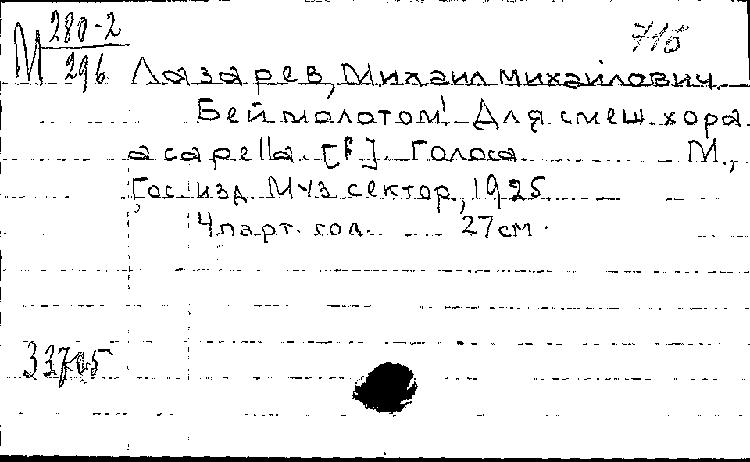 М 280-2
296
Лазарев, Михаил Михайлович.
Бей молотом! Для смеш. хора
a capella. [f]. Голоса М.,
Гос. изд. Муз сектор, 1925.
4 парт. гол. 27 см.